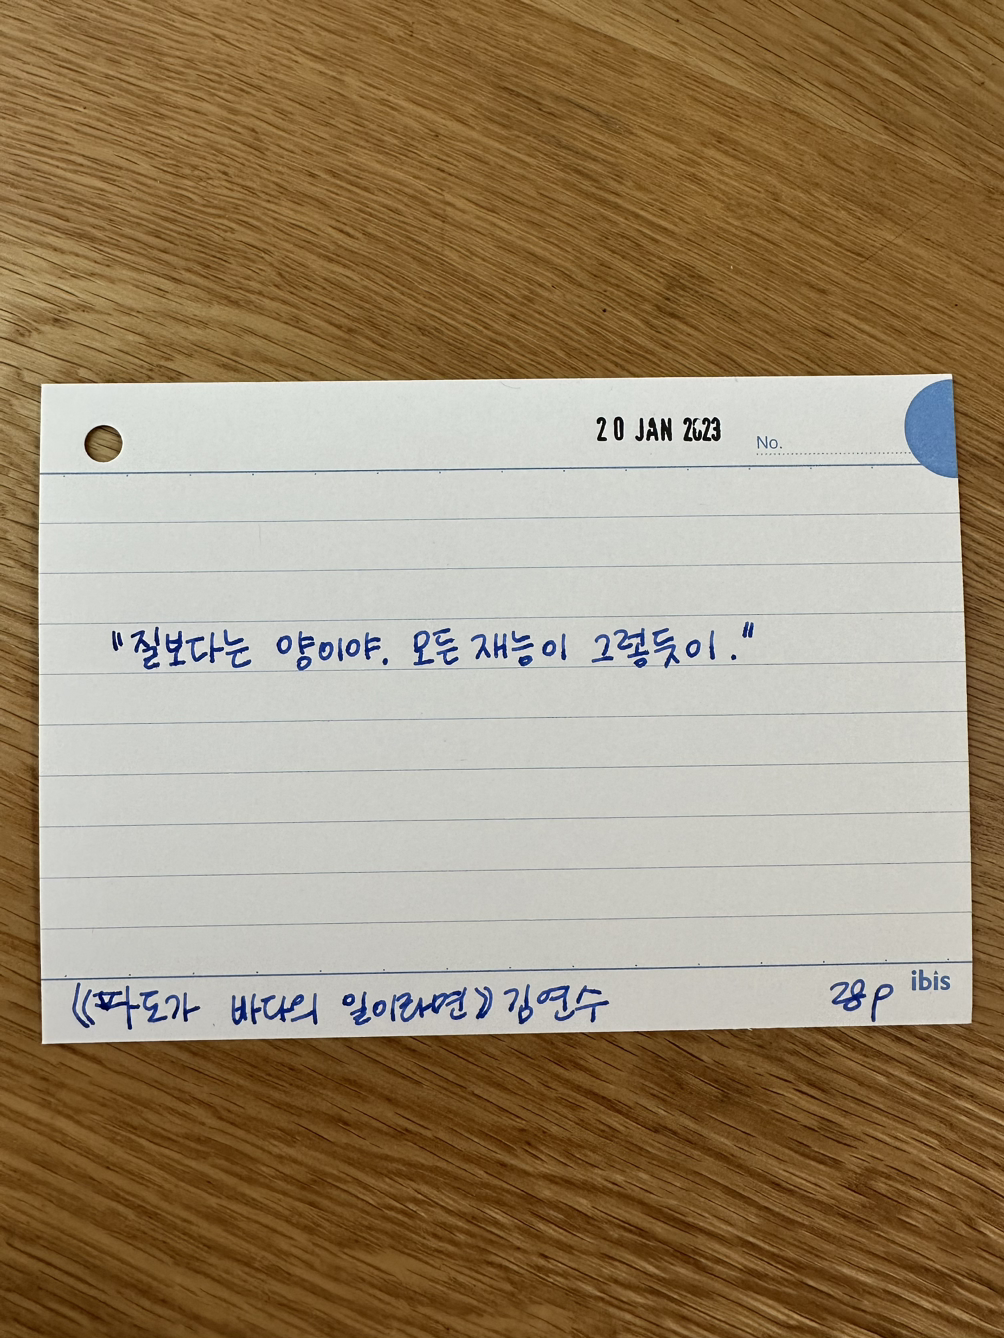 20 JAN 2023
No.
"질보다는 양이야. 모든 재능이 그렇듯이."
《파도가 바다의 일이라면》 김연수
28p
ibis